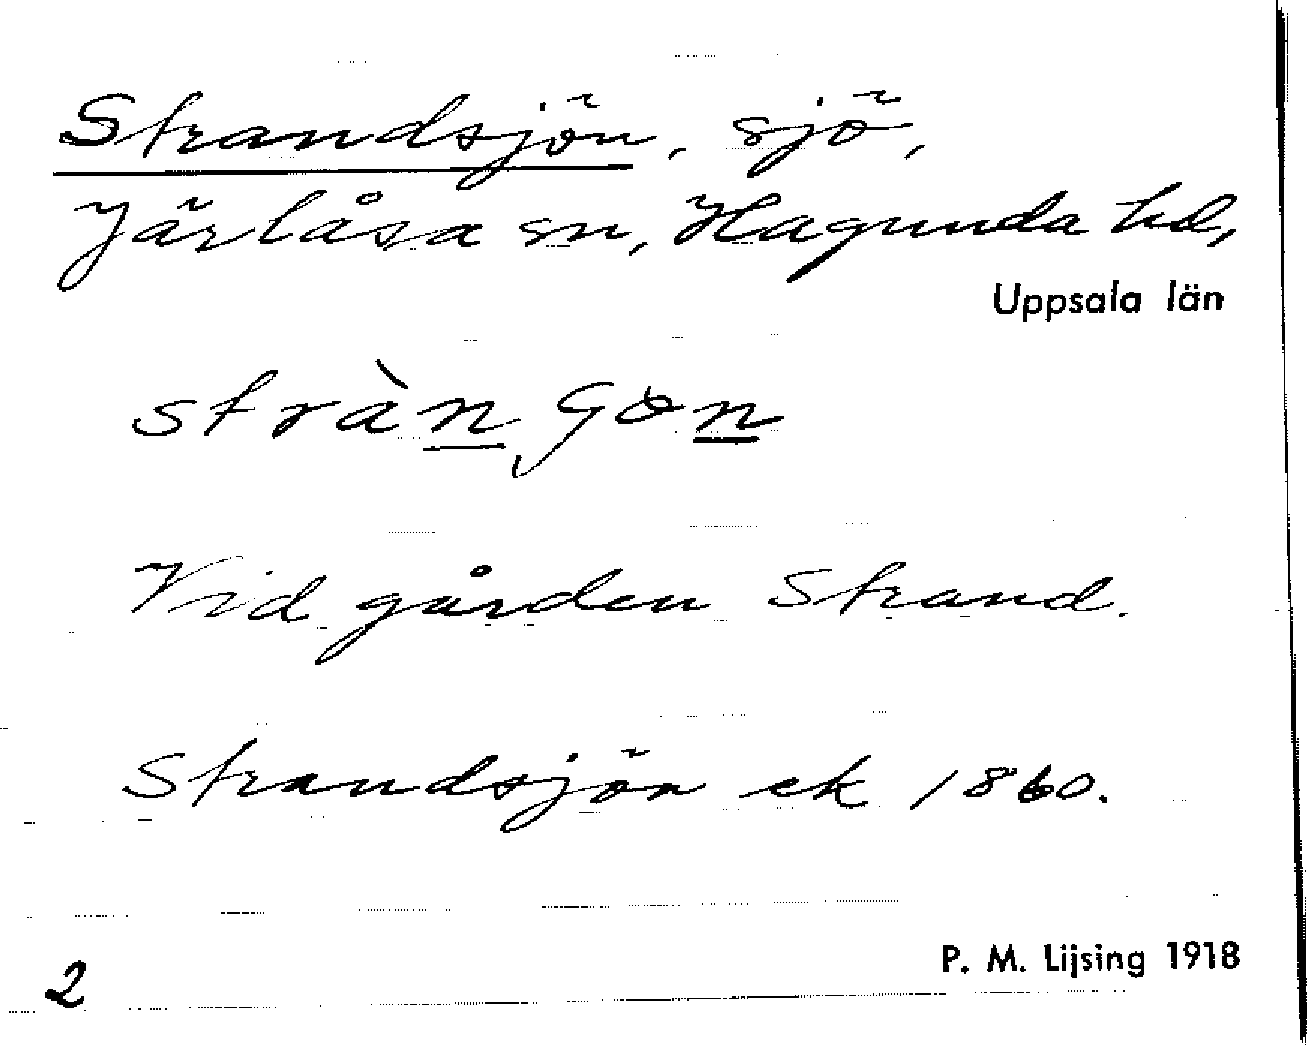 Strandsjön, sjö,
Järlåsa sn, Hagunda hd,
Uppsala län
stràn,
Vid gården Strand.
Strandsjön ek 1860.
P. M. Lijsing 1918
2